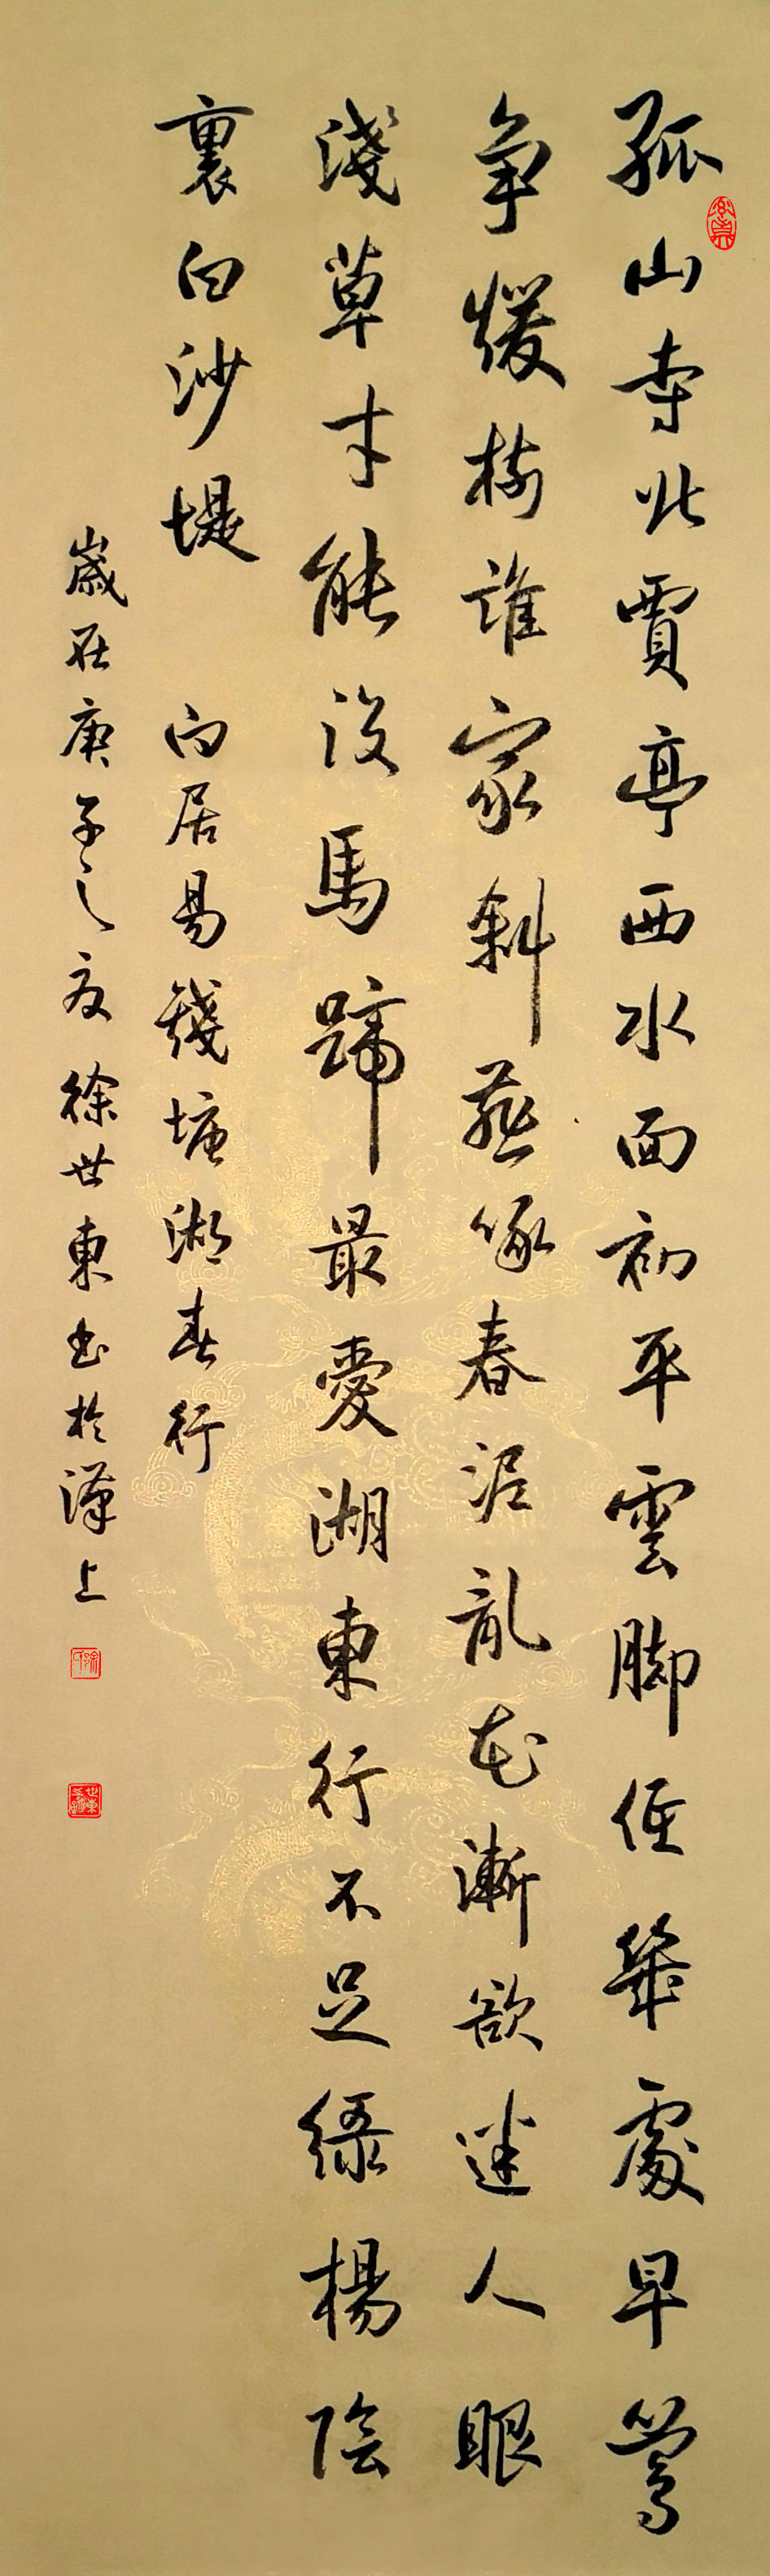 孤山寺北賈亭西水面初平雲脚低幾處早鶯
争煖樹誰家新燕啄春泥亂花漸欲迷人眼
淺草才能没馬蹄最愛湖東行不足緑楊陰
裏白沙堤 白居易錢塘湖春行
歲在庚子之夏徐世東书於漢上